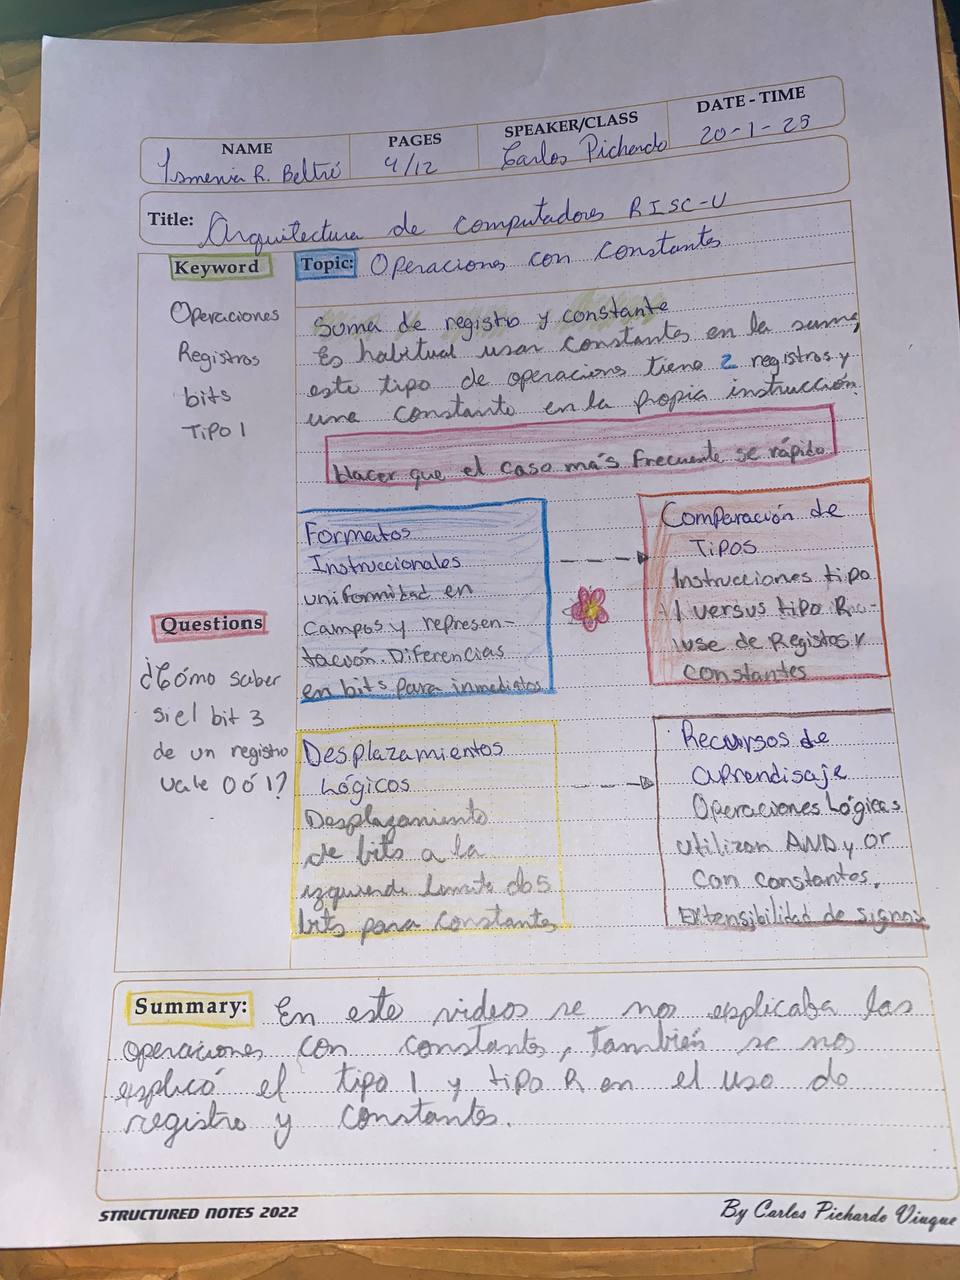 NAME
PAGES
SPEAKER/CLASS
DATE - TIME
Ismenia R. Beltré
4/12
Carlos Pichardo
20-1-25
Title: Arquitectura de computadores RISC-V
Keyword
Topic: Operaciones con constantes
Operaciones
Registros
bits
Tipo I
Suma de registro y constante
Es habitual usar constantes en la suma,
este tipo de operacions tiene 2 registros y
una constante en la propia instrucción.
Hacer que el caso más frecuente se rápido
Formatos
Instruccionales
uniformidad en
campos y represen-
tación. Diferencias
en bits para inmediatos
Comparación de
Tipos
Instrucciones tipo
I versus tipo R
use de Registos y
constantes
Questions
¿Cómo saber
si el bit 3
de un registro
vale 0 ó 1?
Desplazamientos
Lógicos
Desplazamiento
de bits a la
izquierda
bits para constantes
Recursos de
aprendisaje
Operaciones Lógicas
utilizan AND y or
con constantes.
Extensibilidad de signos
Summary: En este videos se nos explicaba las
operaciones con constante, también se nos
explicó el tipo I y tipo R en el uso de
registro y constantes.
STRUCTURED NOTES 2022
By Carlos Pichardo Viuque